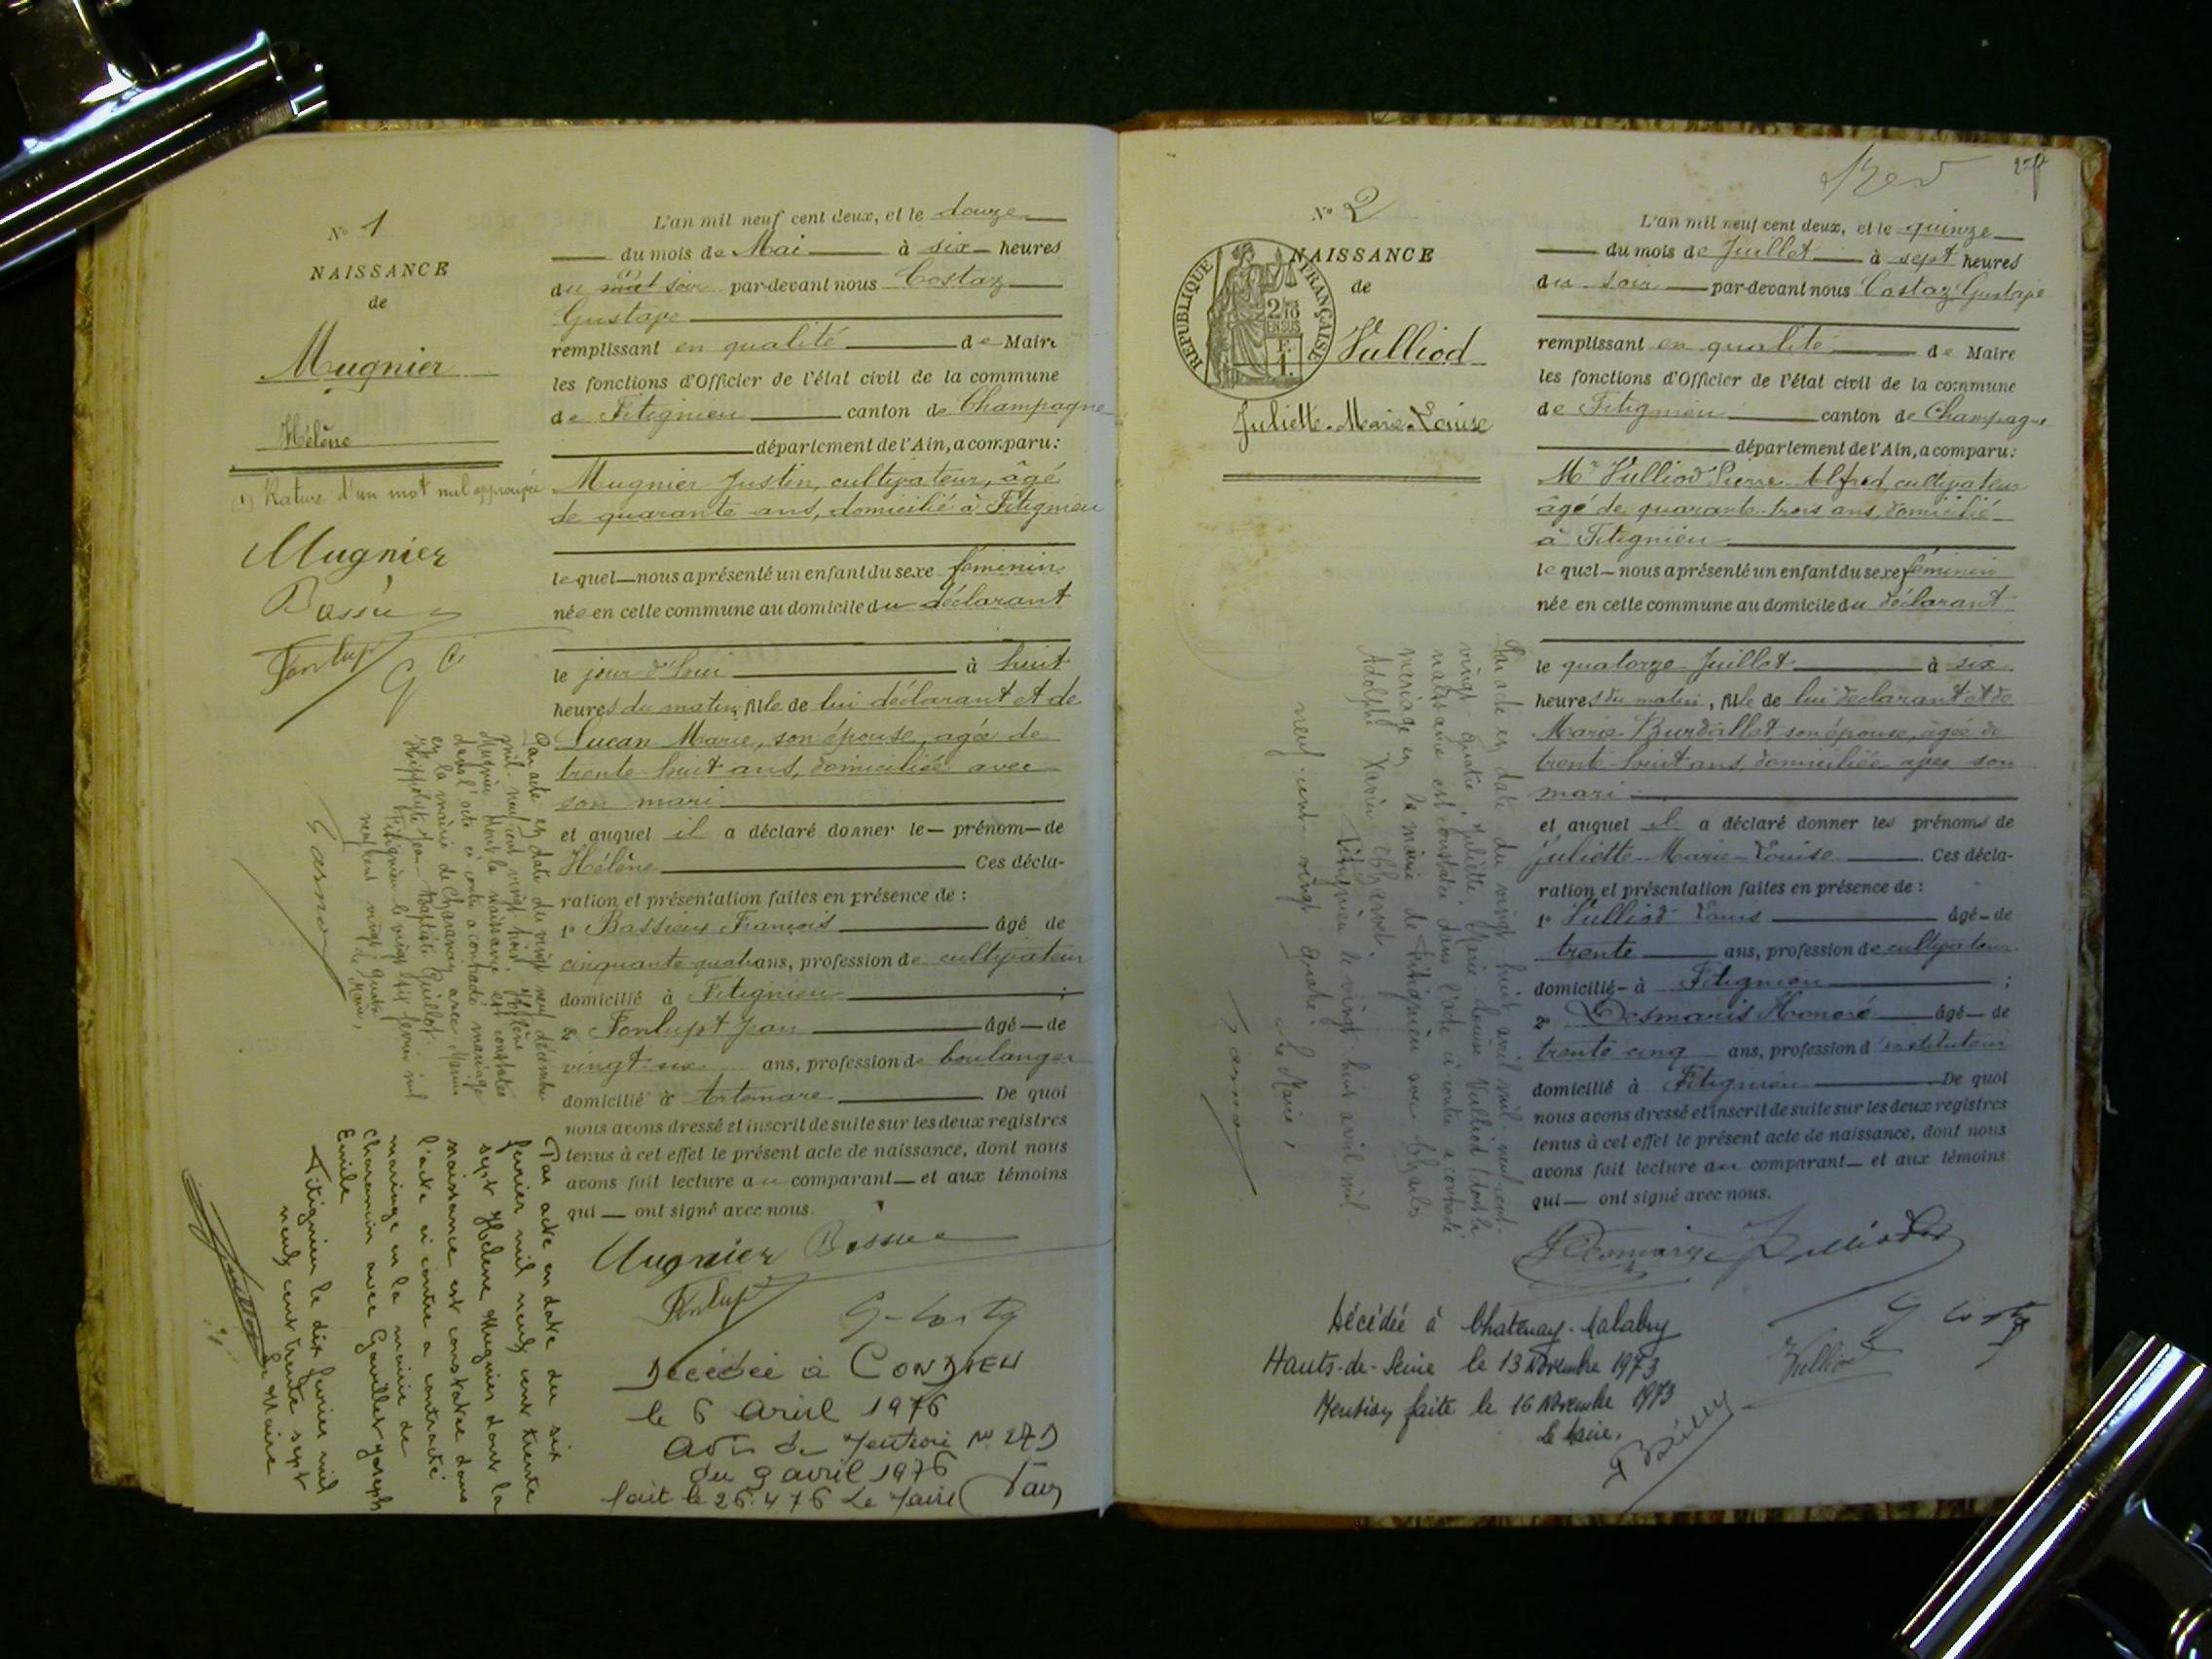 N° 1
NAISSANCE
de
Mugnier
Hélène
1) Rature d'un mot nul approuvée
Mugnier
Bassieu
Fonlupt
G C
L'an mil neuf cent deux, et le douze
du mois de Mai à six heures
du mat soir par-devant nous Costaz
Gustave
remplissant en qualité de Maire
les fonctions d'Officier de l'état civil de la commune
de Fitignieu canton de Champagne
département de l'Ain, a comparu:
Mugnier Justin, cultivateur, âgé
de quarante ans, domicilié à Fitignieu
lequel nous a présenté un enfant du sexe féminin
née en cette commune au domicile du déclarant
le jour d'hui à huit
heures du matin, fille de lui déclarant et de
Lucan Marie, son épouse, agée de
trente-huit ans, domiciliée avec
son mari
et auquel il a déclaré donner le prénom de
Hélène Ces décla-
ration et présentation faites en présence de :
1° Bassieu François âgé de
cinquante quatre ans, profession de cultivateur
domicilié à Fitignieu ;
2° Fonlupt Jean âgé de
vingt six ans, profession de boulanger
domicilié à Artemare De quoi
nous avons dressé et inscrit de suite sur les deux registres
tenus à cet effet le présent acte de naissance, dont nous
avons fait lecture au comparant et aux témoins
qui ont signé avec nous.
Mugnier Bassieu
Fonlupt G. Costaz
Décédée à CONDRIEU
le 6 avril 1976
avis de mention N° 27
du 9 avril 1976
fait le 26.4.76 Le Maire
Par acte en date du vingt neuf décembre
mil neuf cent vingt trois, Hélène
Mugnier dont la naissance est constatée
dans l'acte ci contre a contracté mariage
en la mairie de Charancin avec Marin
Hippolyte Jean-Baptiste Guillot.
Fitignieu le vingt six février mil
neuf cent vingt quatre
Le Maire,
Garnod
Par acte en date du six
février mil neuf cent trente
sept Hélène Mugnier dont la
naissance est constatée dans
l'acte ci contre a contracté
mariage en la mairie de
Charancin avec Gavillet Joseph
Emile
Fitignieu le dix février mil
neuf cent trente sept
Le Maire
N° 2
NAISSANCE
de
RÉPUBLIQUE FRANÇAISE
2/10
EN SUS
Vulliod
Juliette-Marie-Louise
L'an mil neuf cent deux, et le quinze
du mois de Juillet à sept heures
du soir par-devant nous Costaz Gustave
remplissant en qualité de Maire
les fonctions d'Officier de l'état civil de la commune
de Fitignieu canton de Champagne
département de l'Ain, a comparu:
Mr Vulliod Pierre Alfred, cultivateur
âgé de quarante-trois ans, domicilié
à Fitignieu
lequel nous a présenté un enfant du sexe féminin
née en cette commune au domicile du déclarant
le quatorze Juillet à six
heures du matin, fille de lui déclarant et de
Marie Burdallet son épouse, âgée de
trente-huit ans, domiciliée avec son
mari
et auquel il a déclaré donner les prénoms de
Juliette-Marie-Louise Ces décla-
ration et présentation faites en présence de :
1° Vulliod Louis âgé de
trente ans, profession de cultivateur
domicilié à Fitignieu ;
2° Desmaris Honoré âgé de
trente cinq ans, profession d'instituteur
domicilié à Fitignieu De quoi
nous avons dressé et inscrit de suite sur les deux registres
tenus à cet effet le présent acte de naissance, dont nous
avons fait lecture au comparant et aux témoins
qui ont signé avec nous.
Desmaris Vulliod
G Costaz
Vulliod
Par acte en date du vingt huit avril mil neuf cent
vingt-quatre Juliette Marie-Louise Vulliod dont la
naissance est constatée dans l'acte ci contre a contracté
mariage en la mairie de Fitignieu avec Charles
Adolphe Xavier
Fitignieu le vingt huit avril mil
neuf-cent-vingt quatre.
Le Maire,
Garnod
Décédée à Chatenay-Malabry
Hauts-de-Seine le 13 Novembre 1973
Mention faite le 16 Novembre 1973
Le Maire,